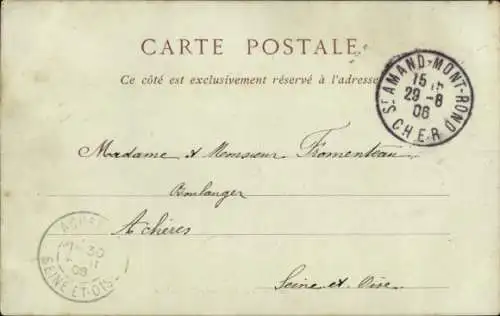 CARTE POSTALE
Ce côté est exclusivement réservé à l'adresse
ST AMAND-MONT-ROND
15
29-8
06
CHER
Madame et Monsieur Fromenteau
Boulanger
Achères
Seine et Oise
30
06
SEINE-ET-OISE